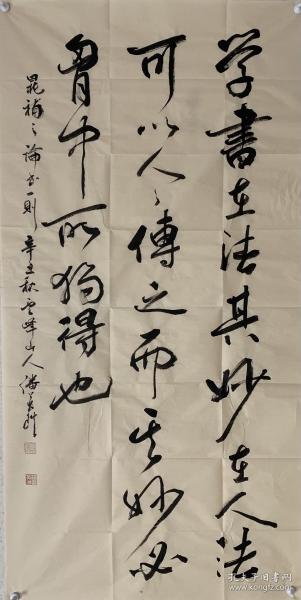 学書在法其妙在人法
可以人々傳之而其妙必
胷中所獨得也
晁補之論書一則 辛丑秋雲峰山人
孔夫子旧书网